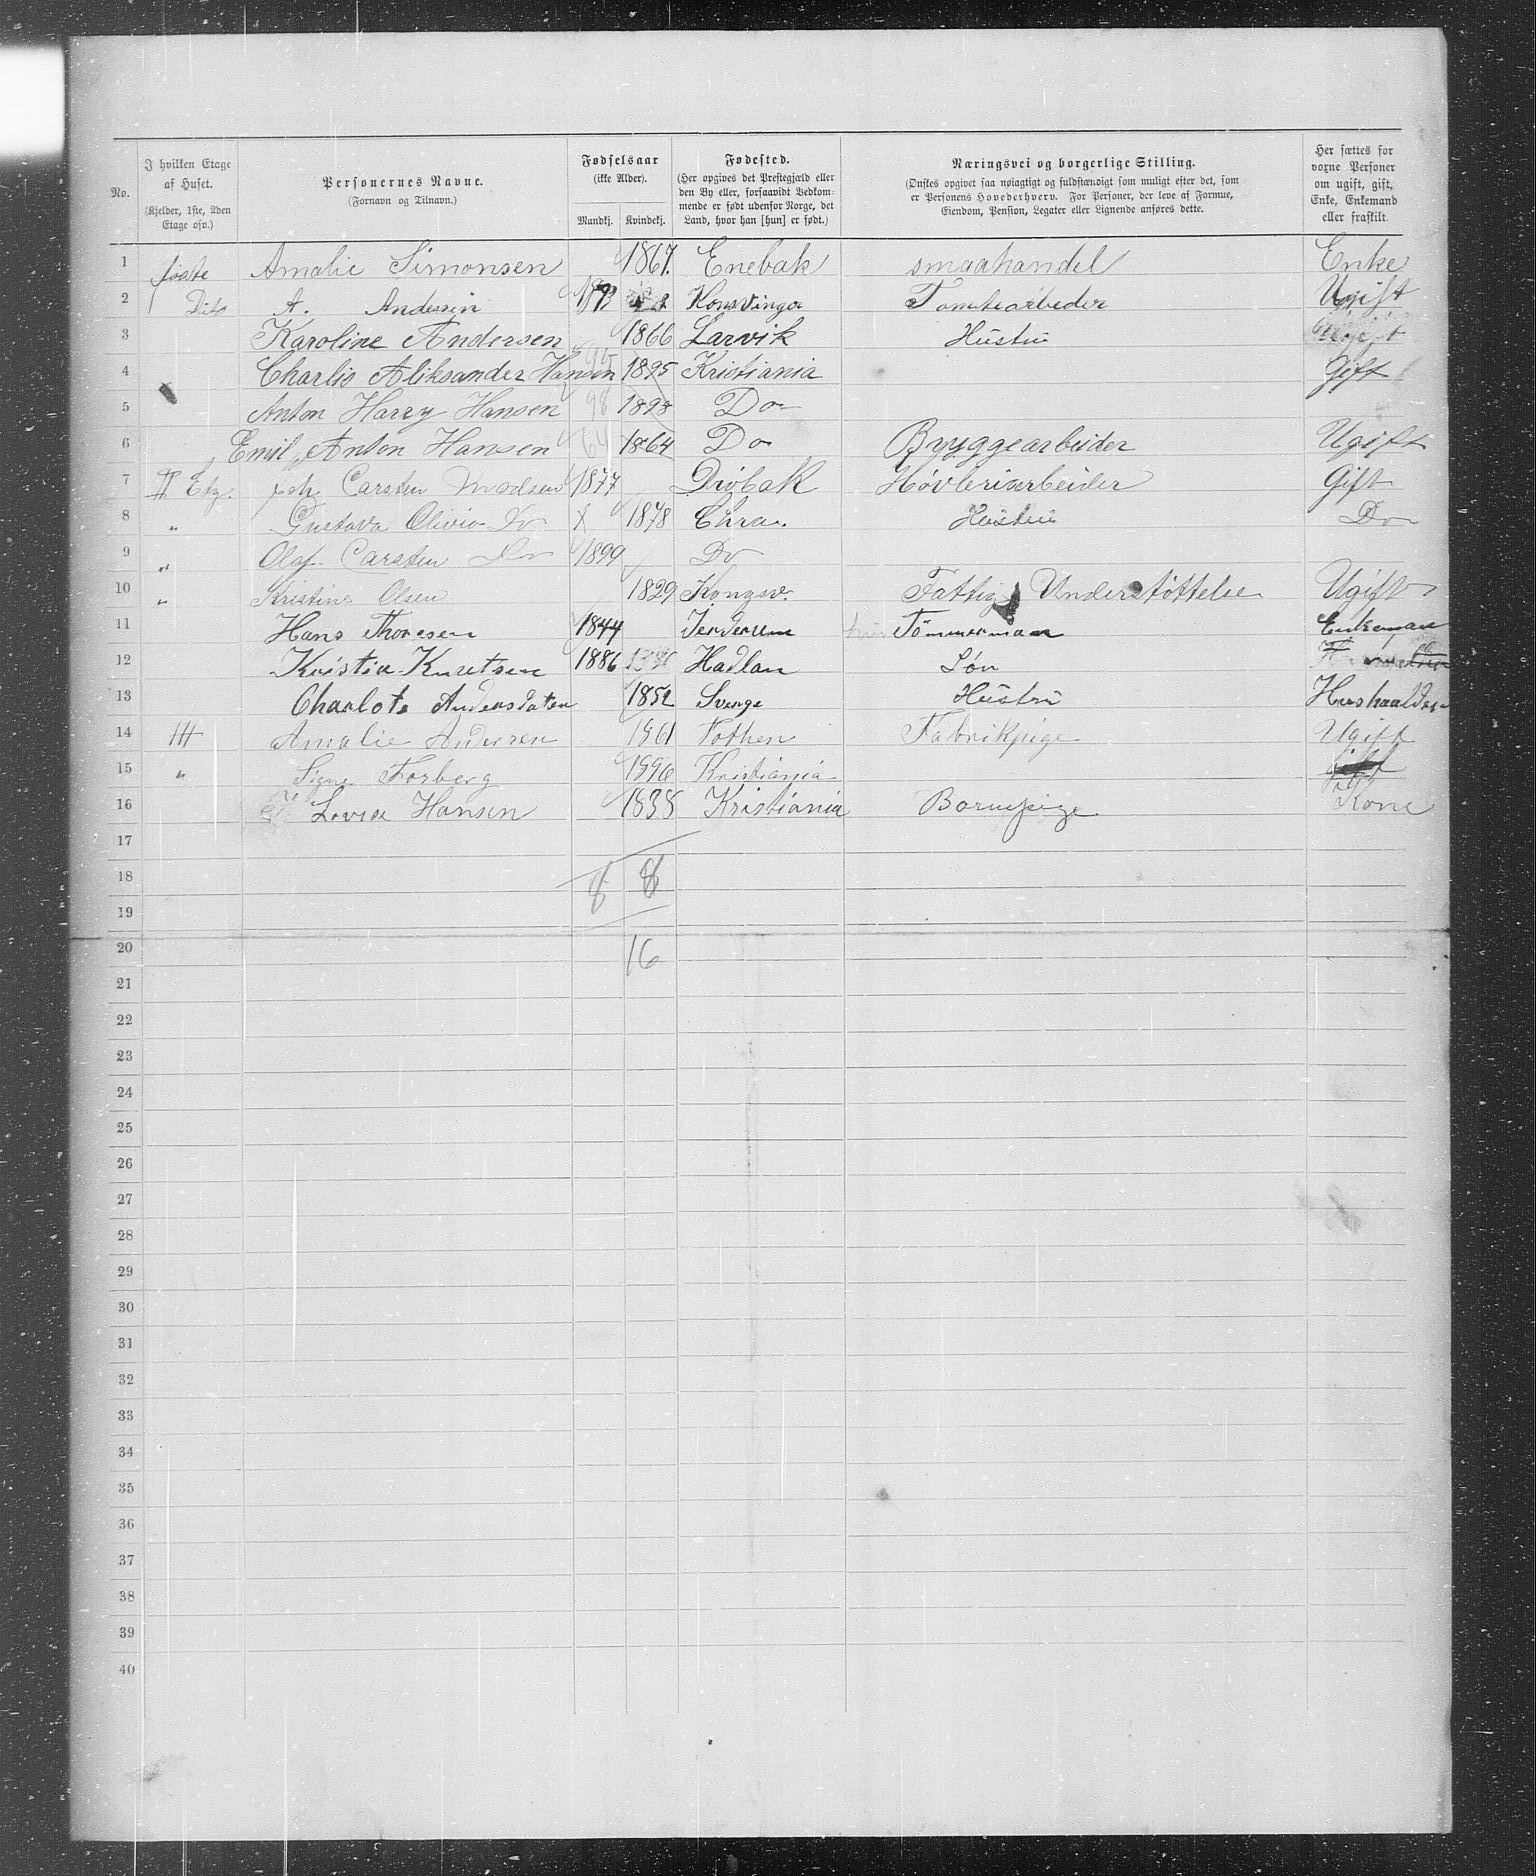 No. J hvilken Etage af Huset. (Kjelder, 1ste, 2den Etage osv.) Personernes Navne. (Fornavn og Tilnavn.) Fødselsaar (ikke Alder). Mandkj. Kvindekj. Fødested. (Her opgives det Prestegjæld eller den By eller, forsaavidt Vedkommende er født udenfor Norge, det Land, hvor han [hun] er født.) Næringsvei og borgerlige Stilling. (Ønskes opgivet saa nøiagtigt og fuldstændigt som muligt efter det, som er Personens Hovederhverv. For Personer, der leve af Formue, Eiendom, Pension, Legater eller Lignende anføres dette. Her sættes for voxne Personer om ugift, gift, Enke, Enkemand eller fraskilt.
1 Amalie Simonsen 1867. Enebak smaahandel Enke
2 Dito A. Andersin Konsvinger Tomtearbeder Ugift
3 Karoline Andersen 1866 Larvik Hustru
4 Charlis Aliksander Hansen 95 1895 Kristiania Gift
5 Anton Harry Hansen 98 1898 Do
6 Emil Anton Hansen 64 1864 Do Bryggearbeider Ugift
7 II Etg. Joh Carsten Madsen 1877 Drøbak Høvleriarbeider Gift
8 " Gustava Olivia Do 1878 Chra. Hustru Do
9 " Olaf Carsten Do 1899 Do
10 " Kristine Olsen 1829 Kongsv. Fattig Understøttelse Ugift
11 Hans Thoresen 1844 Tømmerman Enkeman
12 Kristian Knutsen 1886 Hadlan Søn
13 Charlote Andersdaten 1852 Sverge Hustru
14 III Amalie Andersen 1861 Fabrikpige Ugift
15 " Signe Forberg 1896 Kristiania
16 Lovise Hansen 1838 Kristiania Barnepige Kone
17
18 8 8
19
20 16
21
22
23
24
25
26
27
28
29
30
31
32
33
34
35
36
37
38
39
40